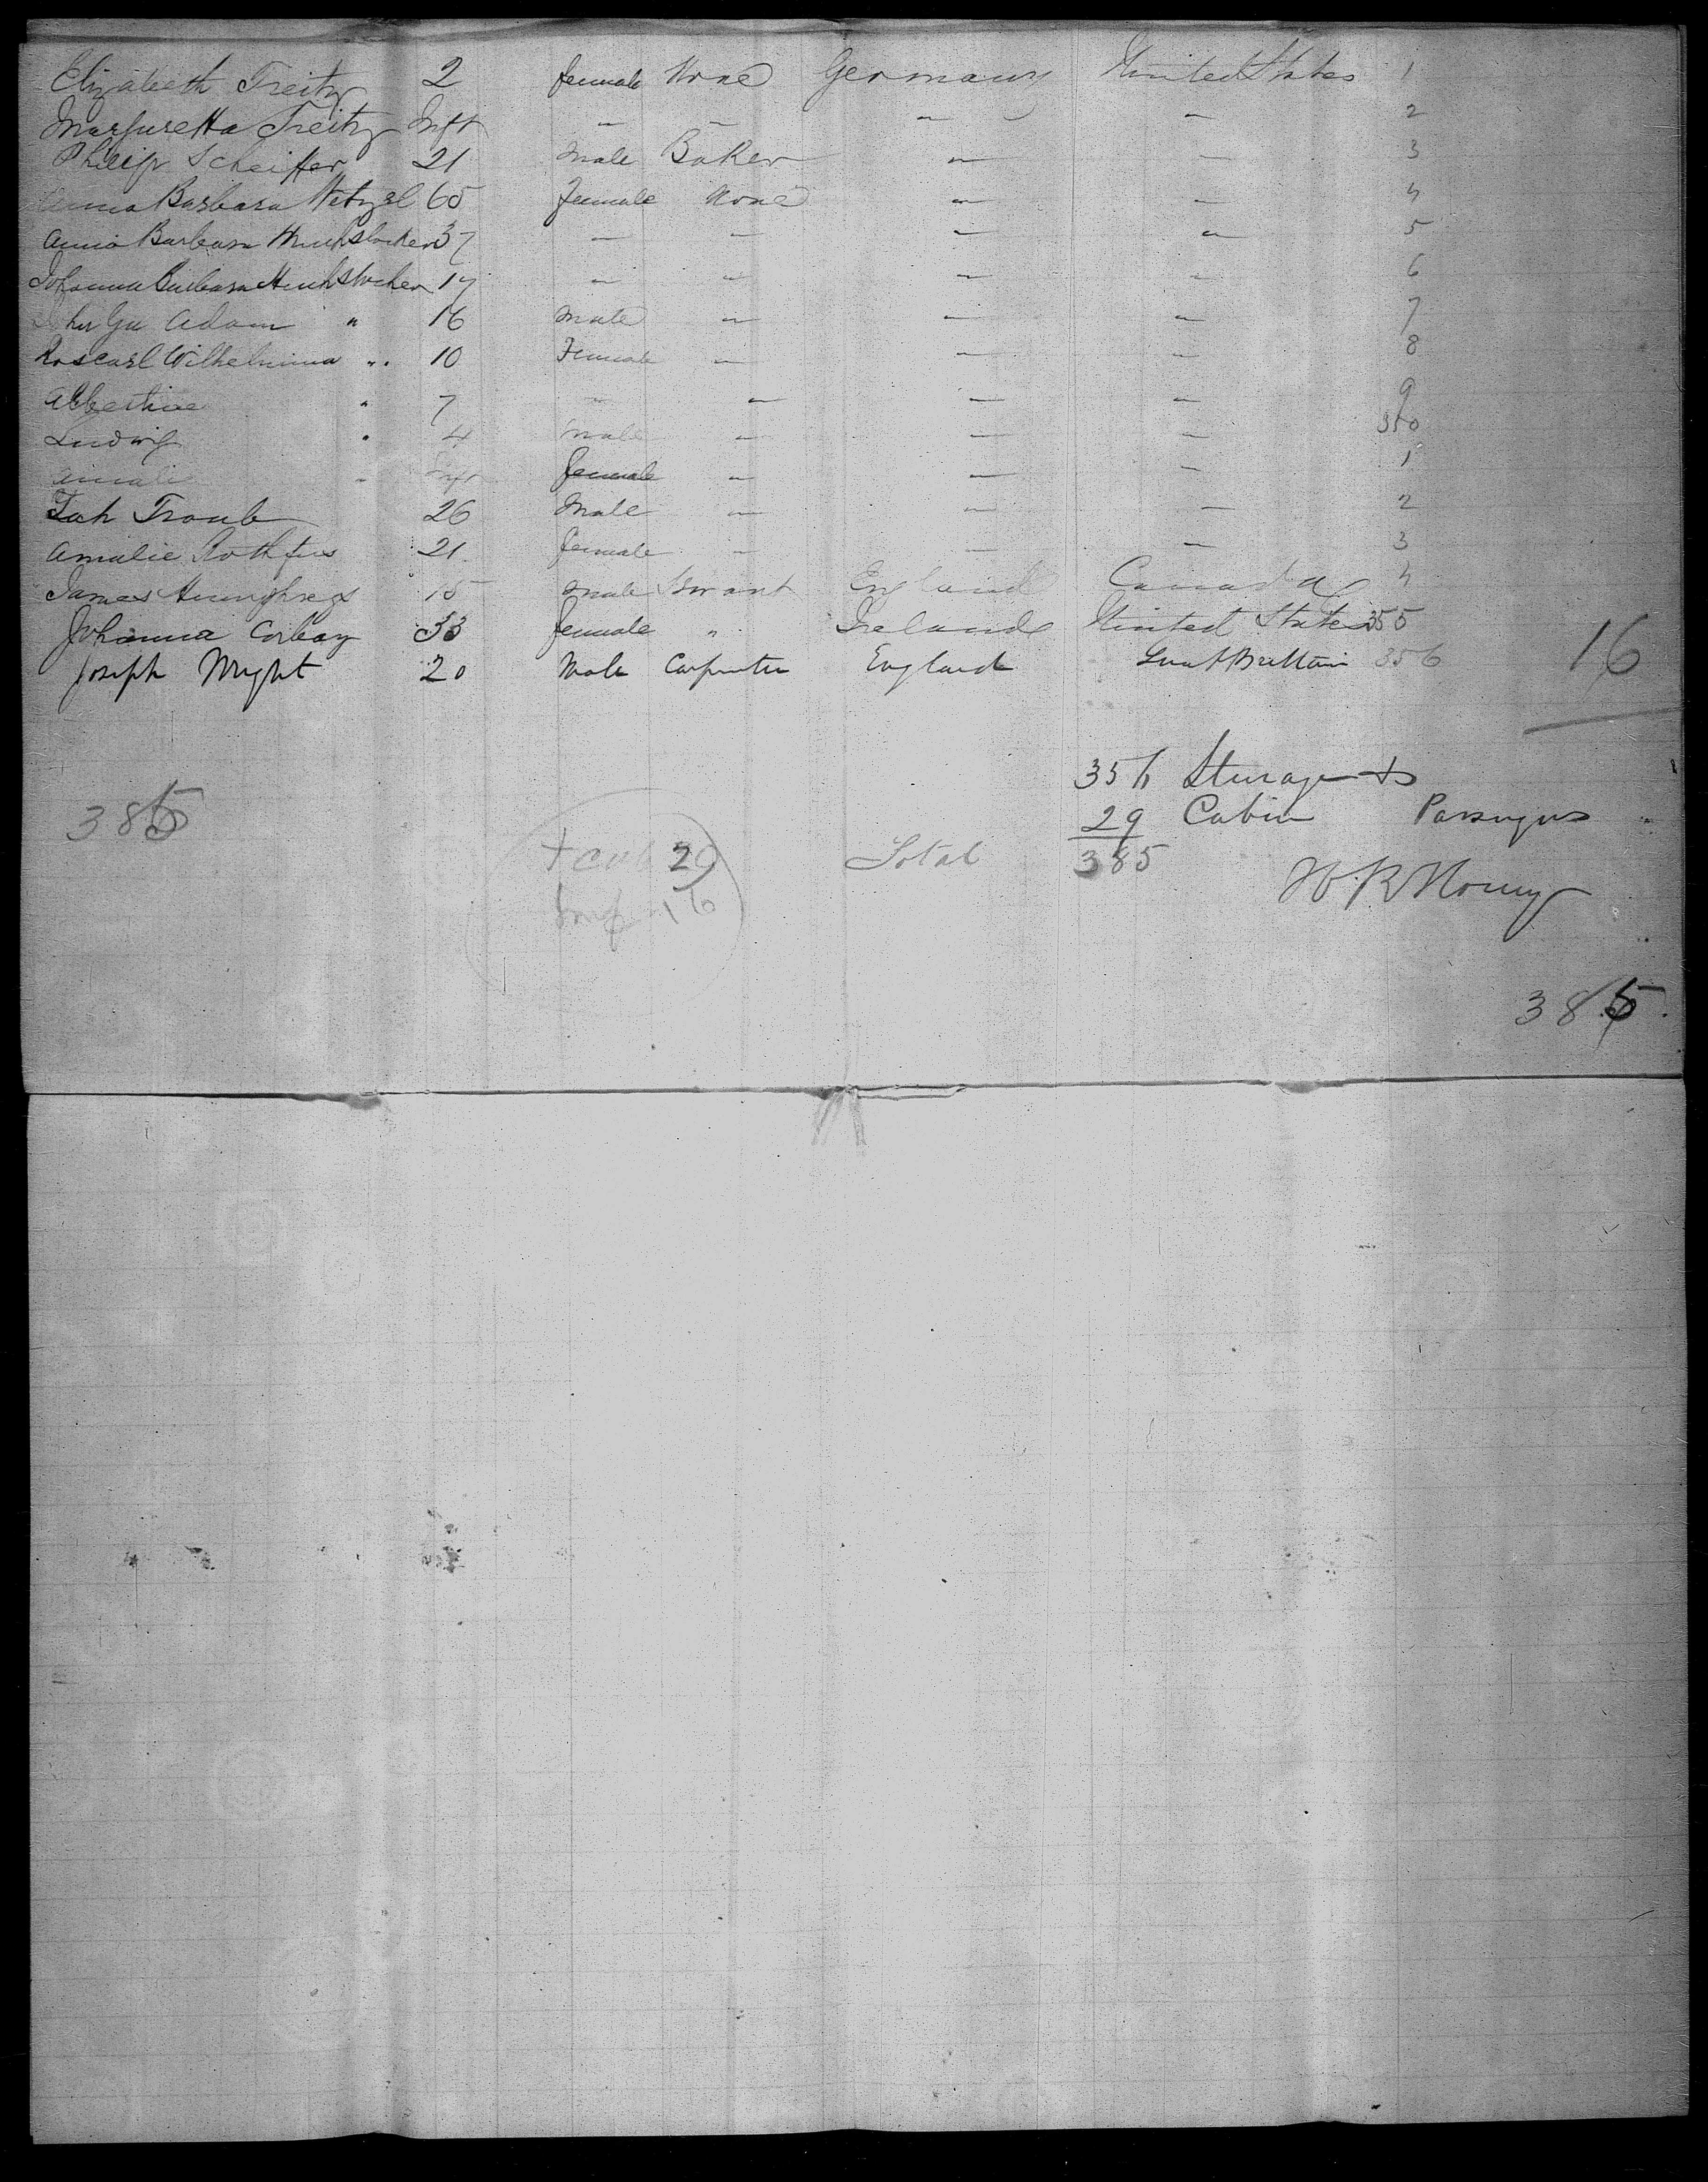 Elizabeth Treitz 2 female None Germany United States 1
Margaretta Treitz Inft " " " " 2
Philip Scheiffer 21 Male Baker " " 3
Anna Barbara Wetzel 65 Female None " " 4
Anna Barbara 37 " " " " 5
Johanna Barbara 17 " " " " 6
Adam " 16 Male " " " 7
Wilhelmina " 10 Female " " " 8
Albertine " 7 " " " " 9
Ludwig " 4 Male " " " 350
Amali " Inft female " " " 1
Traub 26 Male " " " 2
Amalie Rothfus 21 female " " " 3
James Humphreys 15 Male Servant England Canada 4
Johanna Corbay 33 female " Ireland United States 355
Joseph Wright 20 Male Carpenter England Great Brittain 356
16
356 Steerage
29 Cabin Passengers
Total 385
385
+ cab 29
Inf 16
385